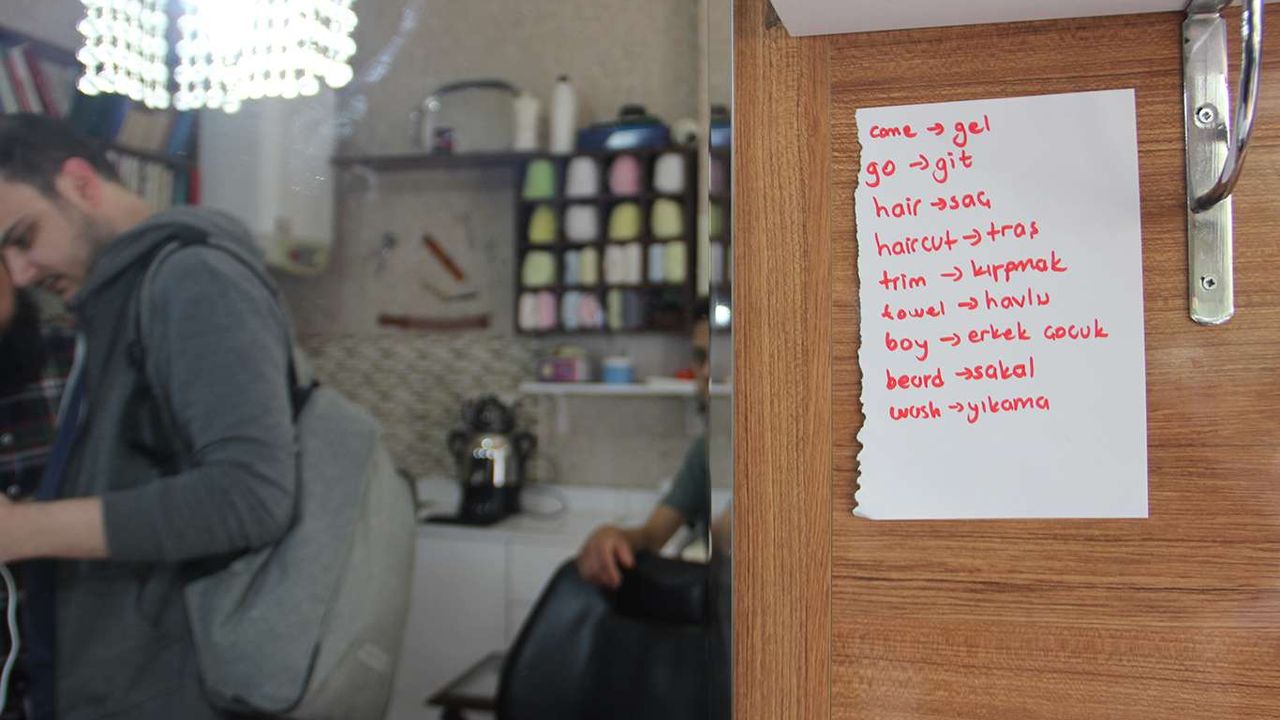 come → gel
go → git
hair → saç
haircut → traş
trim → kırpmak
towel → havlu
boy → erkek çocuk
beard → sakal
wash → yıkama